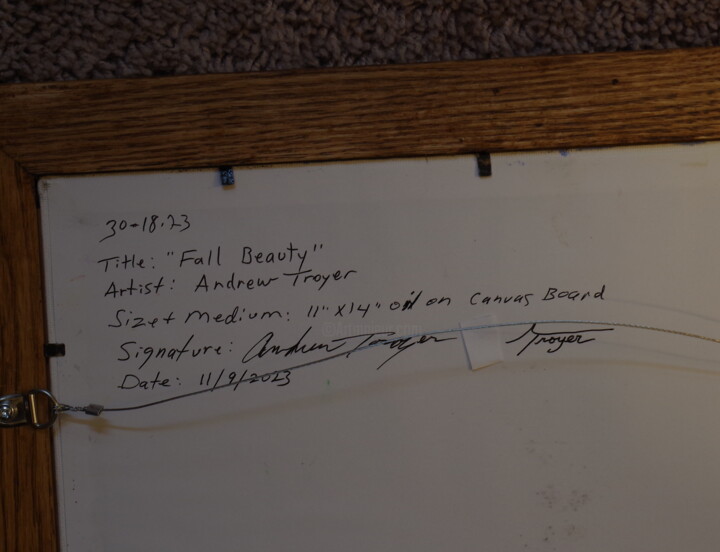 30-18.23
Title: "Fall Beauty"
Artist: Andrew Troyer
Size + Medium: 11" X 14" oil on Canvas Board
Signature: Andrew Troyer Troyer
Date: 11/9/2023